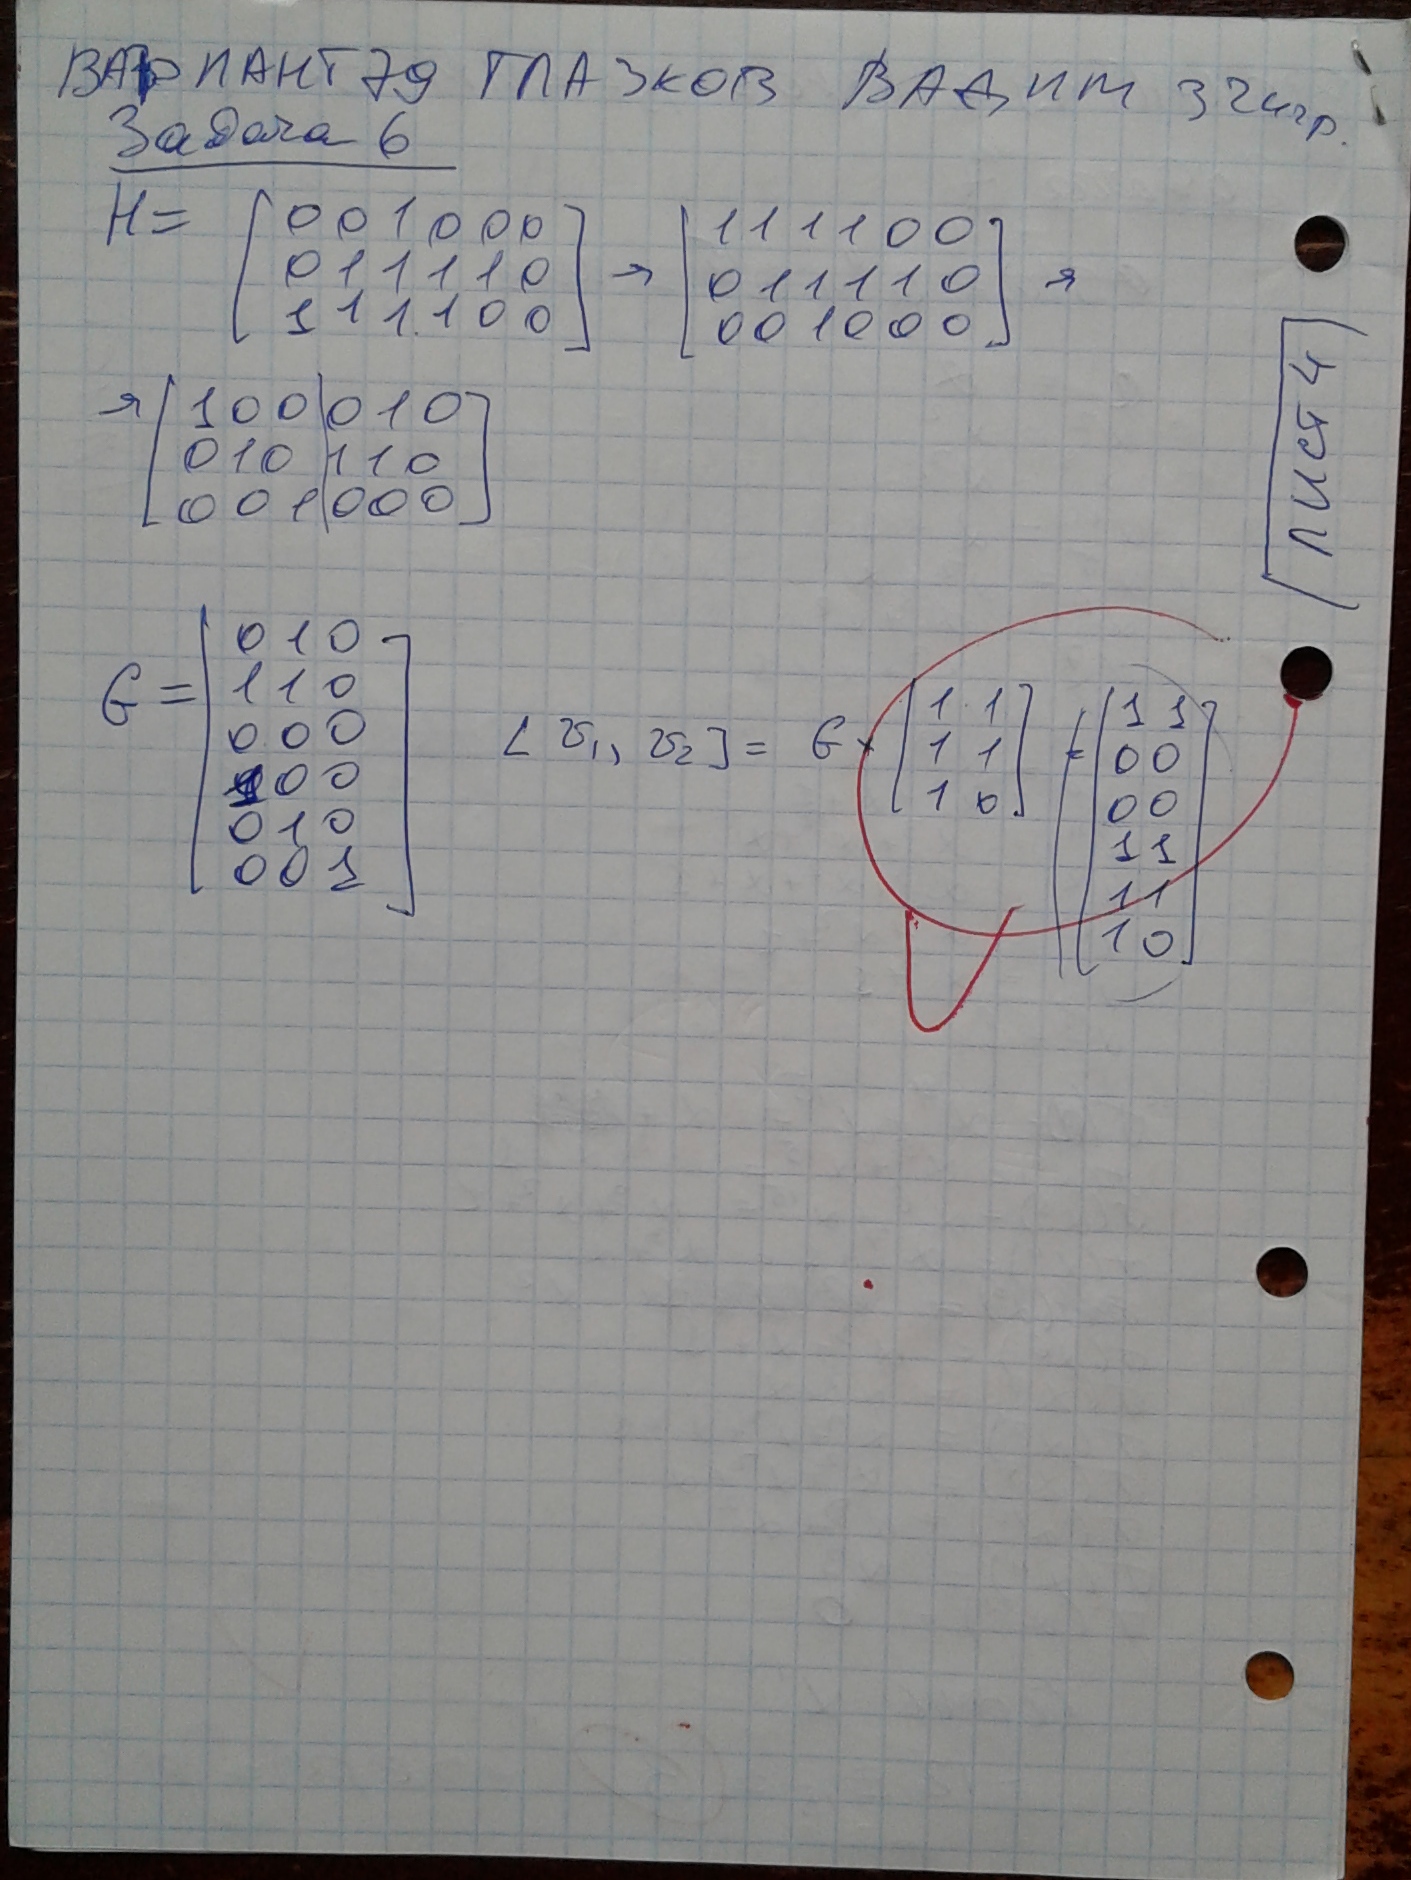 ВАРИАНТ 79 ГЛАЗКОВ ВАДИМ 324гр.
Задача 6
H = [ 0 0 1 0 0 0 ] → [ 1 1 1 1 0 0 ] →
[ 0 1 1 1 1 0 ] [ 0 1 1 1 1 0 ]
[ 1 1 1 1 0 0 ] [ 0 0 1 0 0 0 ]
→ [ 1 0 0 | 0 1 0 ]
[ 0 1 0 | 1 1 0 ]
[ 0 0 1 | 0 0 0 ]
ЛИСТ 4
G = [ 0 1 0 ]
[ 1 1 0 ]
[ 0 0 0 ]
[ 1 0 0 ]
[ 0 1 0 ]
[ 0 0 1 ]
[ v₁, v₂ ] = G × [ 1 1 ] = [ 1 1 ]
[ 1 1 ] [ 0 0 ]
[ 1 0 ] [ 0 0 ]
[ 1 1 ]
[ 1 1 ]
[ 1 0 ]